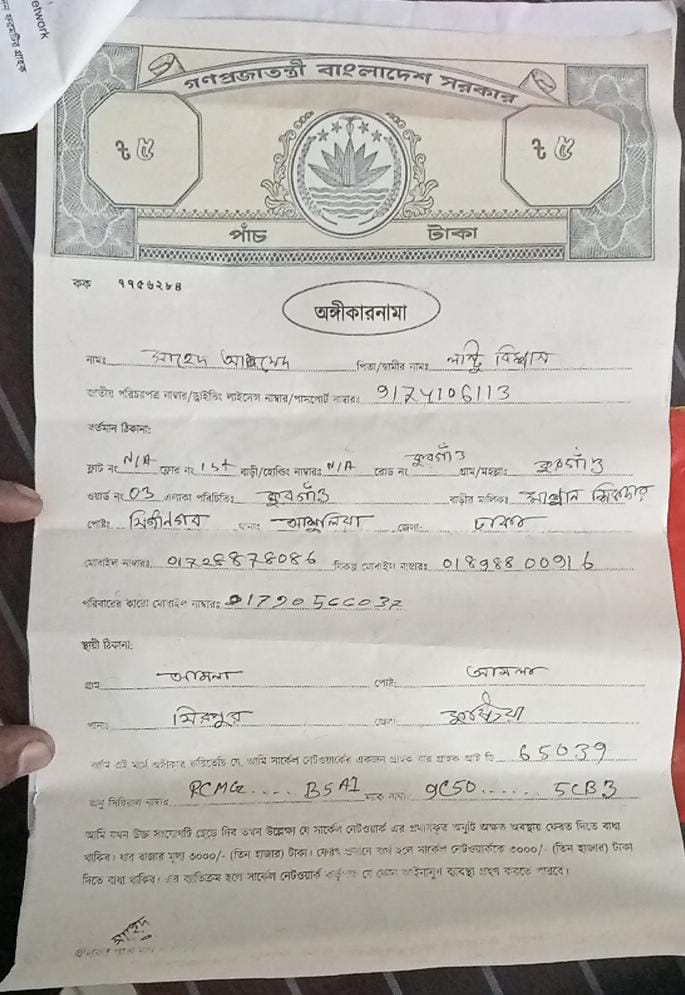 etwork
গণপ্রজাতন্ত্রী বাংলাদেশ সরকার
৳ ৫ ৳ ৫
পাঁচ টাকা
কক ৭৭৫৬২৮৪
অঙ্গীকারনামা
নামঃ সাহেদ আহমেদ পিতা/স্বামীর নামঃ লাল্টু বিশ্বাস
জাতীয় পরিচয়পত্র নাম্বার/ড্রাইভিং লাইসেন্স নাম্বার/পাসপোর্ট নাম্বারঃ 9174106113
বর্তমান ঠিকানা:
ফ্লাট নং N/A ফ্লোর নং 1st বাড়ী/হোল্ডিং নাম্বারঃ N/A রোড নং কুরগাঁও গ্রাম/মহল্লাঃ কুরগাঁও
ওয়ার্ড নং 03 এলাকা পরিচিতিঃ কুরগাঁও বাড়ীর মালিকঃ মান্নান সিকদার
পোষ্টঃ থানাঃ আশুলিয়া জেলা: ঢাকা
মোবাইল নাম্বারঃ 01728878086 বিকল্প মোবাইল নাম্বারঃ 01898800916
পরিবারের কারো মোবাইল নাম্বারঃ 01790566037
স্থায়ী ঠিকানা:
গ্রাম আমলা পোষ্ট: আমলা
থানাঃ মিরপুর জেলা কুষ্টিয়া
আমি এই মর্মে অঙ্গীকার করিতেছি যে, আমি সার্কেল নেটওয়ার্কের একজন গ্রাহক যার গ্রাহক আই ডি 65039
অনু সিরিয়াল নাম্বার RCMG.... B5A1 ম্যাক নাম্বা: 9C50...... 5CB3
আমি যখন উক্ত সংযোগটি ছেড়ে দিব তখন উল্লেক্ষ্য যে সার্কেল নেটওয়ার্ক এর প্রদানকৃত অনুটি অক্ষত অবস্থায় ফেরত দিতে বাধ্য
থাকিব। যার বাজার মূল্য ৩০০০/- (তিন হাজার) টাকা। ফেরৎ প্রদানে ব্যর্থ হলে সার্কেল নেটওয়ার্ককে ৩০০০/- (তিন হাজার) টাকা
দিতে বাধ্য থাকিব। এর ব্যতিক্রম হলে সার্কেল নেটওয়ার্ক কর্তৃপক্ষ যে কোন আইনানুগ ব্যবস্থা গ্রহণ করতে পারবে।
সাহেদ